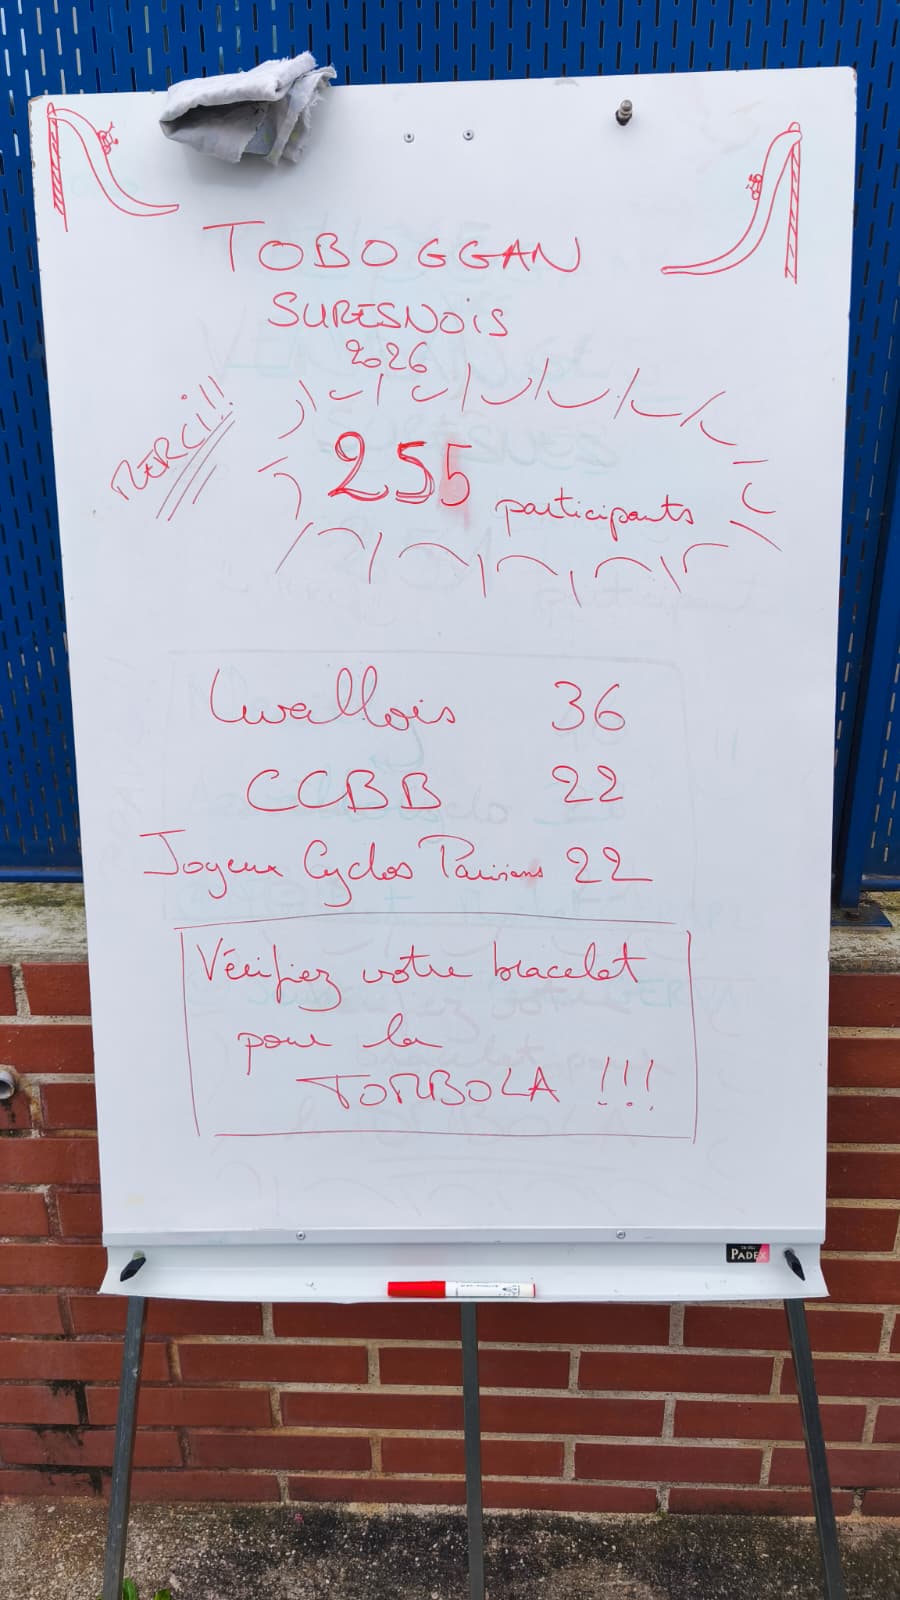 TOBOGGAN
SURESNOIS
2026
MERCI!!
255 participants
Levallois 36
CCBB 22
Joyeux Cyclos Parisiens 22
Vérifiez votre bracelet
pour la
TOMBOLA !!!
PADEX